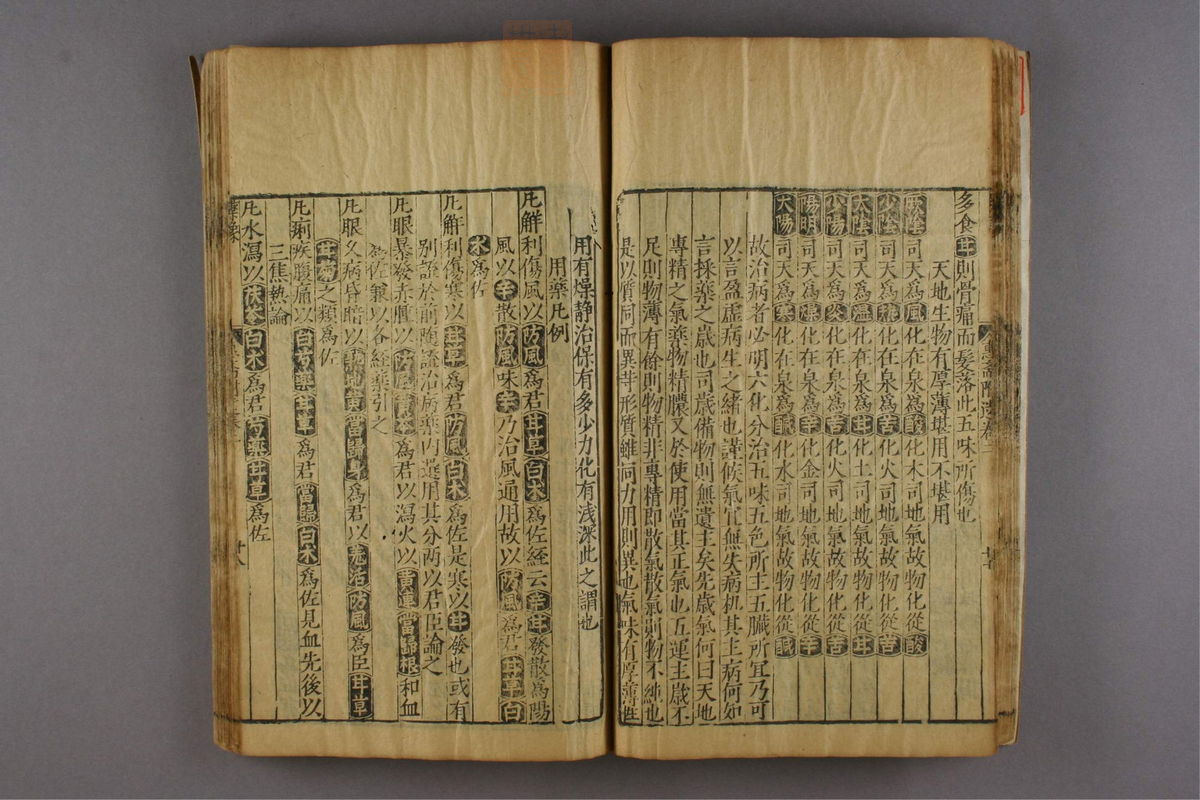 多食甘則骨痛而髮落此五味所傷也
天地生物有厚薄堪用不堪用
厥陰司天爲風化在泉爲酸化木司地氣故物化從酸
少陰司天爲熱化在泉爲苦化火司地氣故物化從苦
太陰司天爲濕化在泉爲甘化土司地氣故物化從甘
少陽司天爲炎化在泉爲苦化火司地氣故物化從苦
陽明司天爲燥化在泉爲辛化金司地氣故物化從辛
太陽司天爲寒化在泉爲鹹化水司地氣故物化從鹹
故治病者必明六化分治五味五色所主五臟所宜乃可
以言盈虛病生之緒也謹候氣宜無失病机其主病何如
言採藥之歲也司歲備物則無遺主矣先歲氣何曰天地
專精之氣藥物精膿又於使用當其正氣也五運主歲不
足則物薄有餘則物精非專精即散氣散氣則物不純也
是以質同而異等形質雖同力用則異也氣味有厚薄性
用有燥静治保有多少力化有浅深此之謂也
用藥凡例
凡解利傷風以防風爲君甘草白术爲佐經云辛甘發散爲陽
風以辛散防風味辛乃治風通用故以防風爲君甘草白
术爲佐
凡解利傷寒以甘草爲君防風白术爲佐是寒以甘發也或有
別證於前隨證治病藥内選用其分两以君臣論之
凡眼暴發赤腫以防風黄芩爲君以瀉火以黄連當歸根和血
爲佐兼以各经藥引之
凡眼久病昏暗以熟地黄當歸身爲君以羌活防風爲臣甘草
甘菊之類爲佐
凡痢疾腹痛以白芍藥甘草爲君當歸白术爲佐見血先後以
三焦熱論
凡水瀉以茯苓白术爲君芍藥甘草爲佐